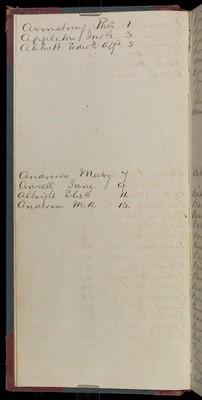 Armstrong Thos 1.
Appleton Jno 3
Abbott Edwd Alfd 5
Andrews Mary 7
Ansell Jane 9
Albright Elizth 11.
Anderson M. A. 13.